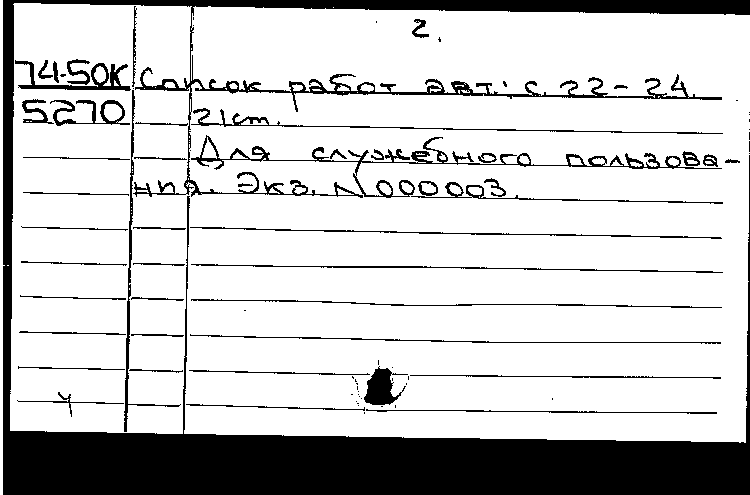 2.
74-5OK Список работ авт.: с. 22-24.
5270 21cm.
Для служебного пользова-
ния. Экз. N 000003.
ч